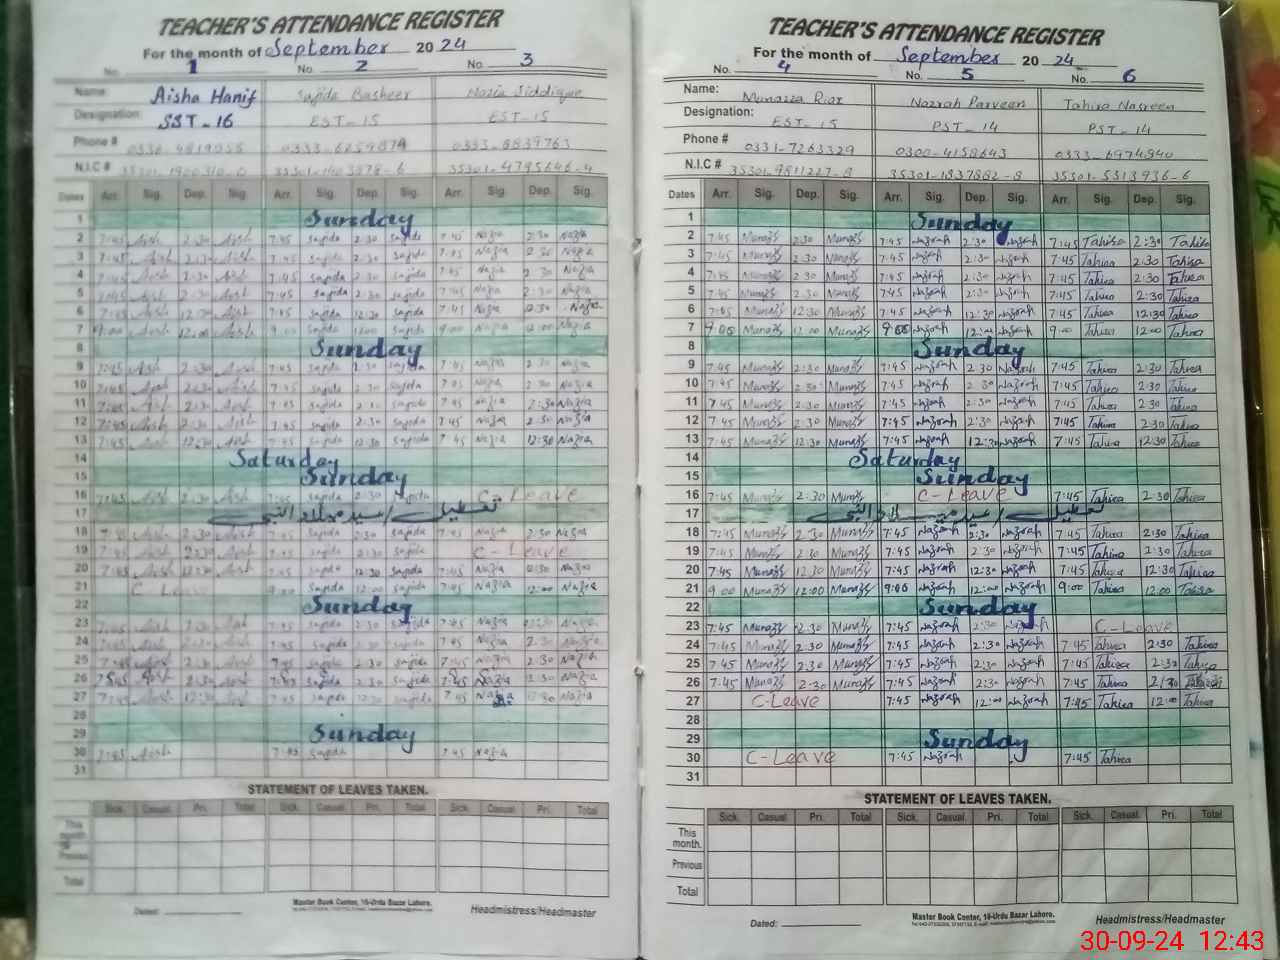 TEACHER'S ATTENDANCE REGISTER
For the month of September 20 24
No. 1 No. 2 No. 3
Name: Aisha Hanif Sajida Basheer Nazia Siddique
Designation: SST-16 EST-15 EST-15
Phone # 0333-6839763
N.I.C #
Dates Arr. Sig. Dep. Sig. Arr. Sig. Dep. Sig. Arr. Sig. Dep. Sig.
1 Sunday
2 7:45 Aish 2:30 Aish 7:45 Sajida 2:30 Sajida 7:45 Nazia 2:30 Nazia
3 7:45 Aish 2:30 Aish 7:45 Sajida 2:30 Sajida 7:45 Nazia 2:30 Nazia
4 7:45 Aish 2:30 Aish 7:45 Sajida 2:30 Sajida 7:45 Nazia 2:30 Nazia
5 7:45 Aish 2:30 Aish 7:45 Sajida 2:30 Sajida 7:45 Nazia 2:30 Nazia
6 7:45 Aish 12:30 Aish 7:45 Sajida 12:30 Sajida 7:45 Nazia 12:30 Nazia
7 9:00 Aish 12:00 Aish 9:00 Sajida 12:00 Sajida 9:00 Nazia 12:00 Nazia
8 Sunday
9 7:45 Aish 2:30 Aish 7:45 Sajida 2:30 Sajida 7:45 Nazia 2:30 Nazia
10 7:45 Aish 2:30 Aish 7:45 Sajida 2:30 Sajida 7:45 Nazia 2:30 Nazia
11 7:45 Aish 2:30 Aish 7:45 Sajida 2:30 Sajida 7:45 Nazia 2:30 Nazia
12 7:45 Aish 2:30 Aish 7:45 Sajida 2:30 Sajida 7:45 Nazia 2:30 Nazia
13 7:45 Aish 12:30 Aish 7:45 Sajida 12:30 Sajida 7:45 Nazia 12:30 Nazia
14 Saturday
15 Sunday
16 7:45 Aish 2:30 Aish 7:45 Sajida 2:30 Sajida C-Leave
17 تعطیل/عید میلاد النبی
18 7:45 Aish 2:30 Aish 7:45 Sajida 2:30 Sajida 7:45 Nazia 2:30 Nazia
19 7:45 Aish 2:30 Aish 7:45 Sajida 2:30 Sajida C-Leave
20 7:45 Aish 12:30 Aish 7:45 Sajida 12:30 Sajida 7:45 Nazia 12:30 Nazia
21 C Leave 9:00 Sajida 12:00 Sajida 7:45 Nazia 12:00 Nazia
22 Sunday
23 7:45 Aish 2:30 Aish 7:45 Sajida 2:30 Sajida 7:45 Nazia Nazia
24 7:45 Aish 2:30 Aish 7:45 Sajida 2:30 Sajida 7:45 Nazia 2:30 Nazia
25 7:45 Aish 2:30 Aish 7:45 Sajida 2:30 Sajida 7:45 Nazia 2:30 Nazia
26 7:45 Aish 2:30 Aish 7:45 Sajida 2:30 Sajida 7:45 Nazia 2:30 Nazia
27 7:45 Aish 12:30 Aish 7:45 Sajida 12:30 Sajida 7:45 Nazia 12:30 Nazia
28
29 Sunday
30 7:45 Aish 7:45 Sajida 7:45 Nazia
31
STATEMENT OF LEAVES TAKEN.
Sick. Casual. Pri. Total Sick. Casual. Pri. Total Sick. Casual. Pri. Total
This month.
Previous
Total
Master Book Center, 16-Urdu Bazar Lahore.
Dated: Headmistress/Headmaster
TEACHER'S ATTENDANCE REGISTER
For the month of September 20 24
No. 4 No. 5 No. 6
Name: Munazza Riaz Nazrah Parveen Tahira Nasreen
Designation: EST-15 PST-14 PST-14
Phone # 0331-7263329 0300-4158643 0333-6974940
N.I.C # 35301-9811227-8 35301-1837882-8 35301-5313936-6
Dates Arr. Sig. Dep. Sig. Arr. Sig. Dep. Sig. Arr. Sig. Dep. Sig.
1 Sunday
2 7:45 Munazz 2:30 Munazz 7:45 Nazrah 2:30 Nazrah 7:45 Tahira 2:30 Tahira
3 7:45 Munazz 2:30 Munazz 7:45 Nazrah 2:30 Nazrah 7:45 Tahira 2:30 Tahira
4 7:45 Munazz 2:30 Munazz 7:45 Nazrah 2:30 Nazrah 7:45 Tahira 2:30 Tahira
5 7:45 Munazz 2:30 Munazz 7:45 Nazrah 2:30 Nazrah 7:45 Tahira 2:30 Tahira
6 7:45 Munazz 12:30 Munazz 7:45 Nazrah 12:30 Nazrah 7:45 Tahira 12:30 Tahira
7 9:00 Munazz 12:00 Munazz 9:00 Nazrah 12:00 Nazrah 9:00 Tahira 12:00 Tahira
8 Sunday
9 7:45 Munazz 2:30 Munazz 7:45 Nazrah 2:30 Nazrah 7:45 Tahira 2:30 Tahira
10 7:45 Munazz 2:30 Munazz 7:45 Nazrah 2:30 Nazrah 7:45 Tahira 2:30 Tahira
11 7:45 Munazz 2:30 Munazz 7:45 Nazrah 2:30 Nazrah 7:45 Tahira 2:30 Tahira
12 7:45 Munazz 2:30 Munazz 7:45 Nazrah 2:30 Nazrah 7:45 Tahira 2:30 Tahira
13 7:45 Munazz 12:30 Munazz 7:45 Nazrah 12:30 Nazrah 7:45 Tahira 12:30 Tahira
14 Saturday
15 Sunday
16 7:45 Munazz 2:30 Munazz C-Leave 7:45 Tahira 2:30 Tahira
17 تعطیل/عید میلاد النبی
18 7:45 Munazz 2:30 Munazz 7:45 Nazrah 2:30 Nazrah 7:45 Tahira 2:30 Tahira
19 7:45 Munazz 2:30 Munazz 7:45 Nazrah 2:30 Nazrah 7:45 Tahira 2:30 Tahira
20 7:45 Munazz 12:30 Munazz 7:45 Nazrah 12:30 Nazrah 7:45 Tahira 12:30 Tahira
21 9:00 Munazz 12:00 Munazz 9:00 Nazrah 12:00 Nazrah 9:00 Tahira 12:00 Tahira
22 Sunday
23 7:45 Munazz 2:30 Munazz 7:45 Nazrah 2:30 Nazrah C-Leave
24 7:45 Munazz 2:30 Munazz 7:45 Nazrah 2:30 Nazrah 7:45 Tahira 2:30 Tahira
25 7:45 Munazz 2:30 Munazz 7:45 Nazrah 2:30 Nazrah 7:45 Tahira 2:30 Tahira
26 7:45 Munazz 2:30 Munazz 7:45 Nazrah 2:30 Nazrah 7:45 Tahira 2:30
27 C-Leave 7:45 Nazrah 12:00 Nazrah 7:45 Tahira 12:00 Tahira
28
29 Sunday
30 C-Leave 7:45 Nazrah 7:45 Tahira
31
STATEMENT OF LEAVES TAKEN.
Sick. Casual. Pri. Total Sick. Casual. Pri. Total Sick. Casual. Pri. Total
This month.
Previous
Total
Master Book Center, 16-Urdu Bazar Lahore.
Dated: Headmistress/Headmaster
30-09-24 12:43